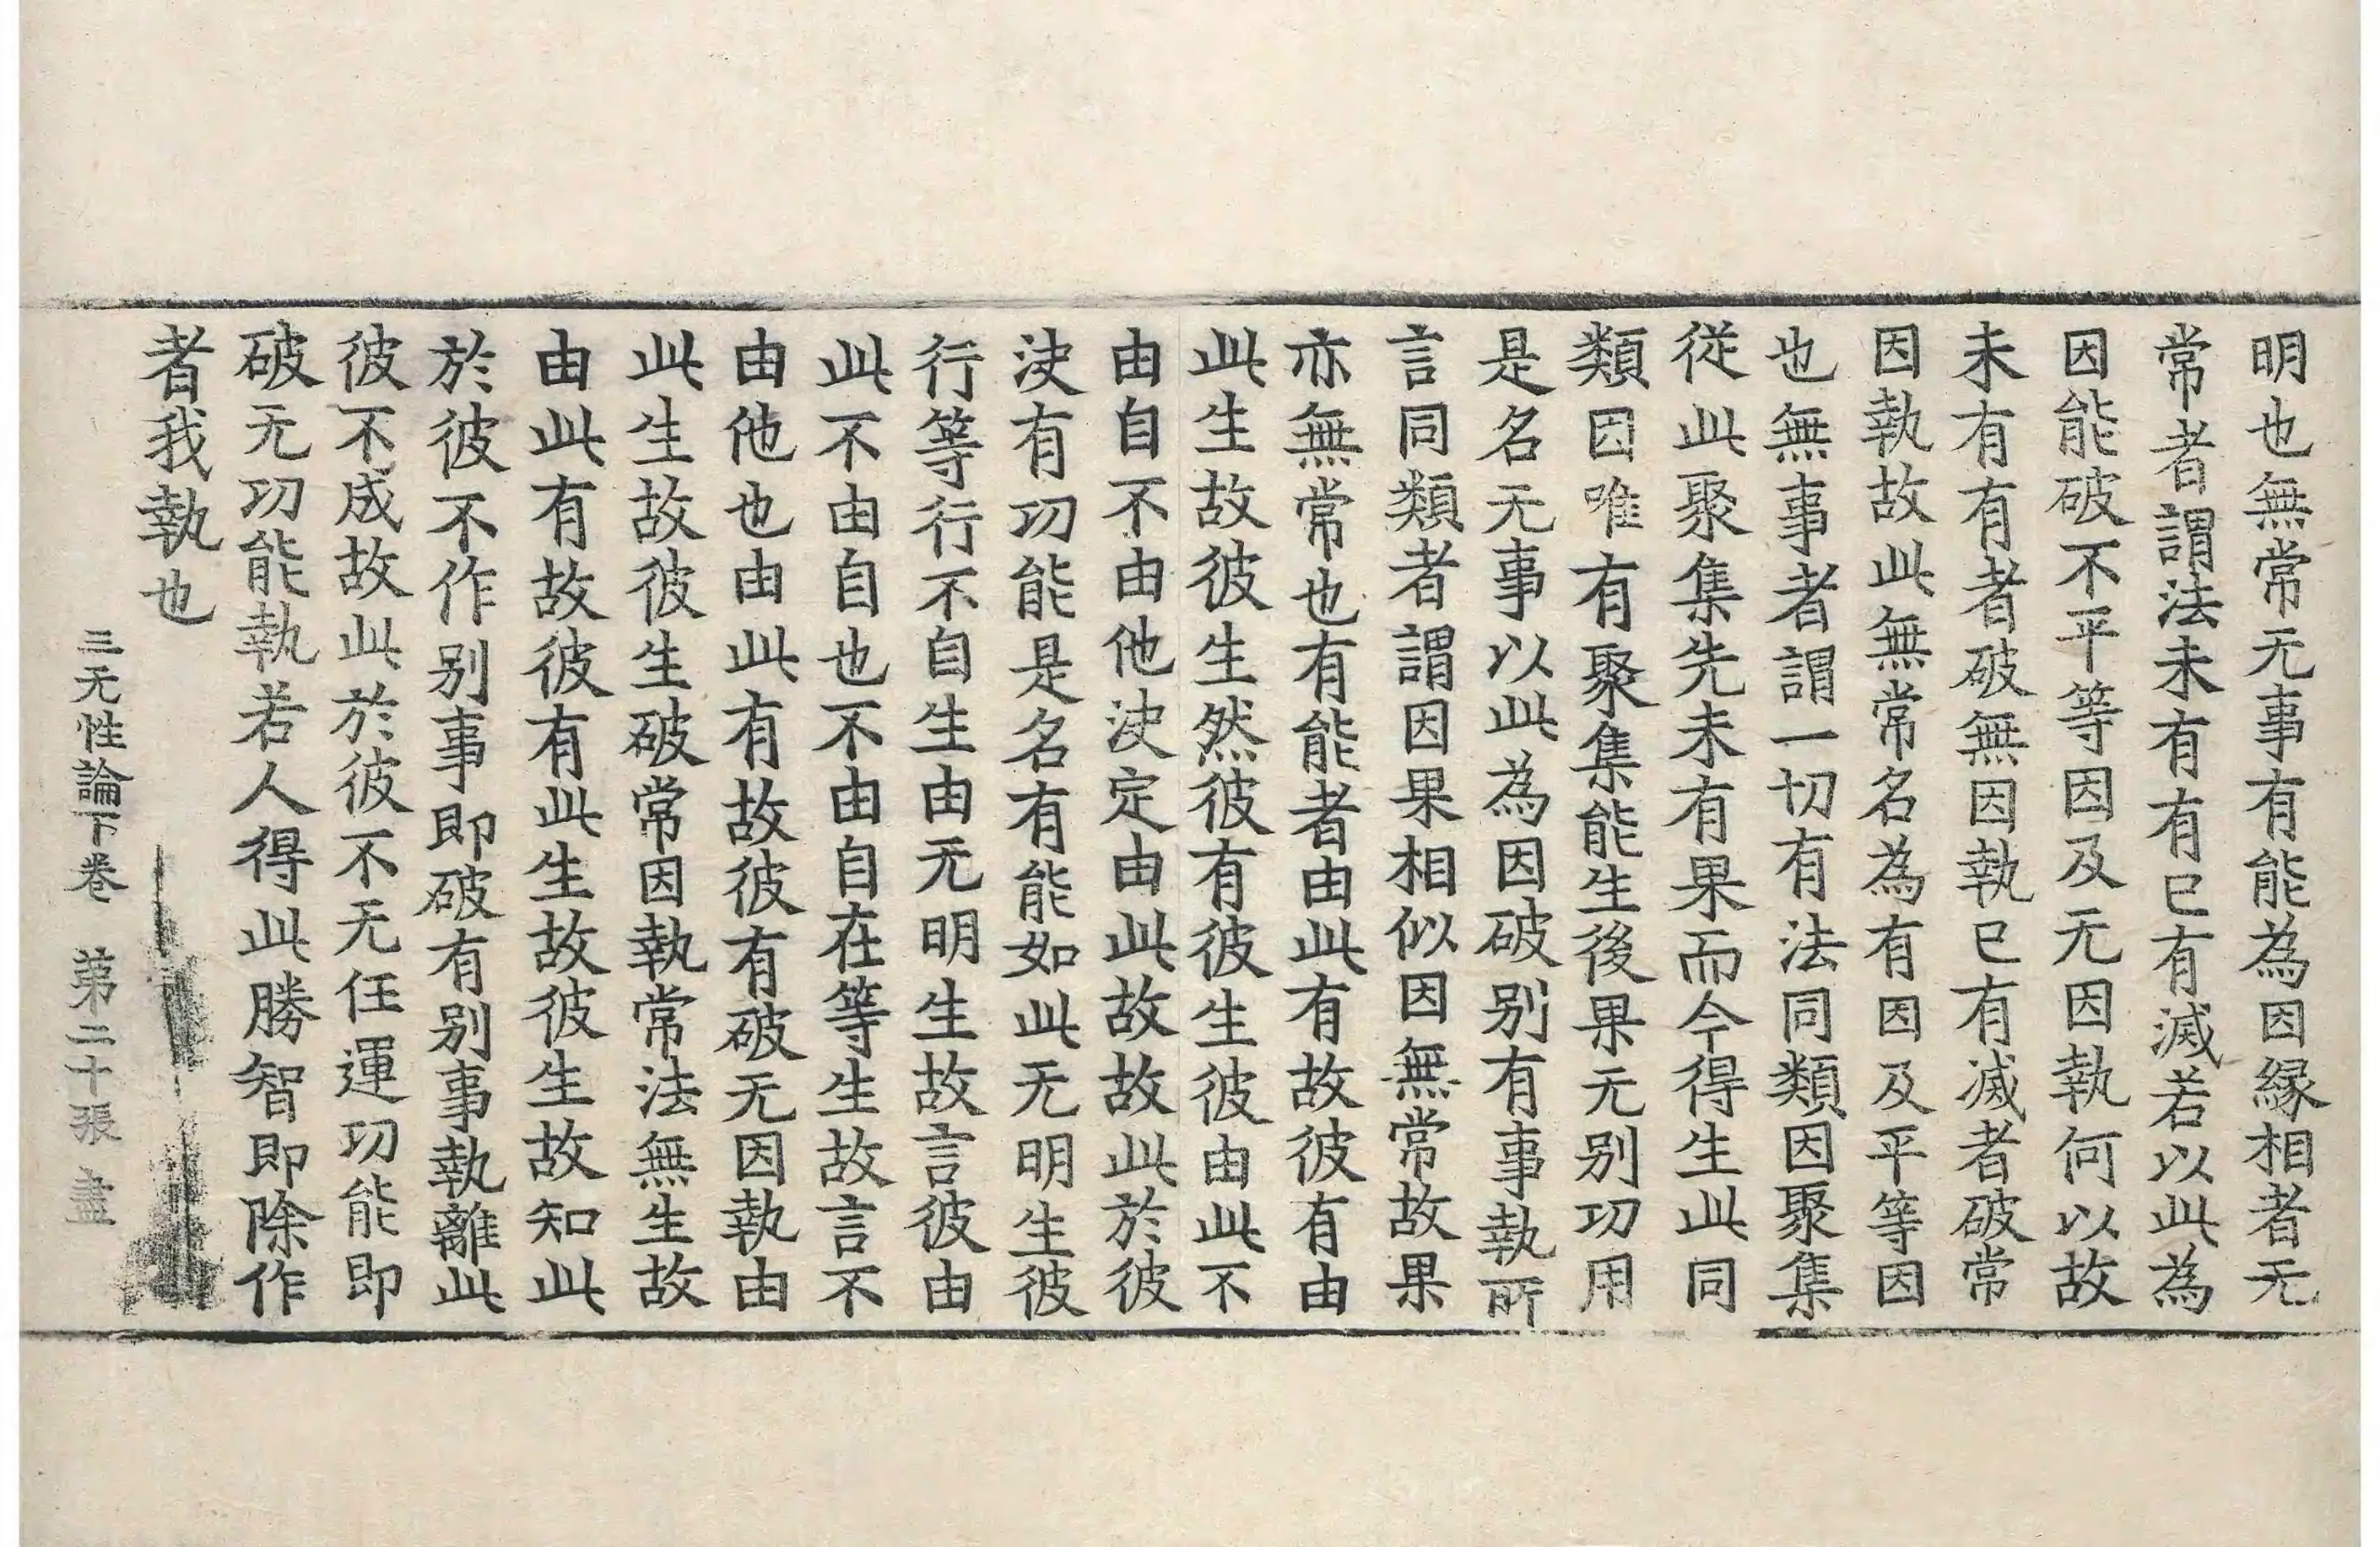 明也無常无事有能為因緣相者无
常者謂法未有有已有滅若以此為
因能破不平等因及无因執何以故
未有有者破無因執已有滅者破常
因執故此無常名為有因及平等因
也無事者謂一切有法同類因聚集
從此聚集先未有果而今得生此同
類因唯有聚集能生後果无別功用
是名无事以此為因破別有事執所
言同類者謂因果相似因無常故果
亦無常也有能者由此有故彼有由
此生故彼生然彼有彼生彼由此不
由自不由他決定由此故故此於彼
決有功能是名有能如此无明生彼
行等行不自生由无明生故言彼由
此不由自也不由自在等生故言不
由他也由此有故彼有破无因執由
此生故彼生破常因執常法無生故
由此有故彼有此生故彼生故知此
於彼不作別事即破有別事執離此
彼不成故此於彼不无任運功能即
破无功能執若人得此勝智即除作
者我執也
三无性論下卷 第二十張 盡